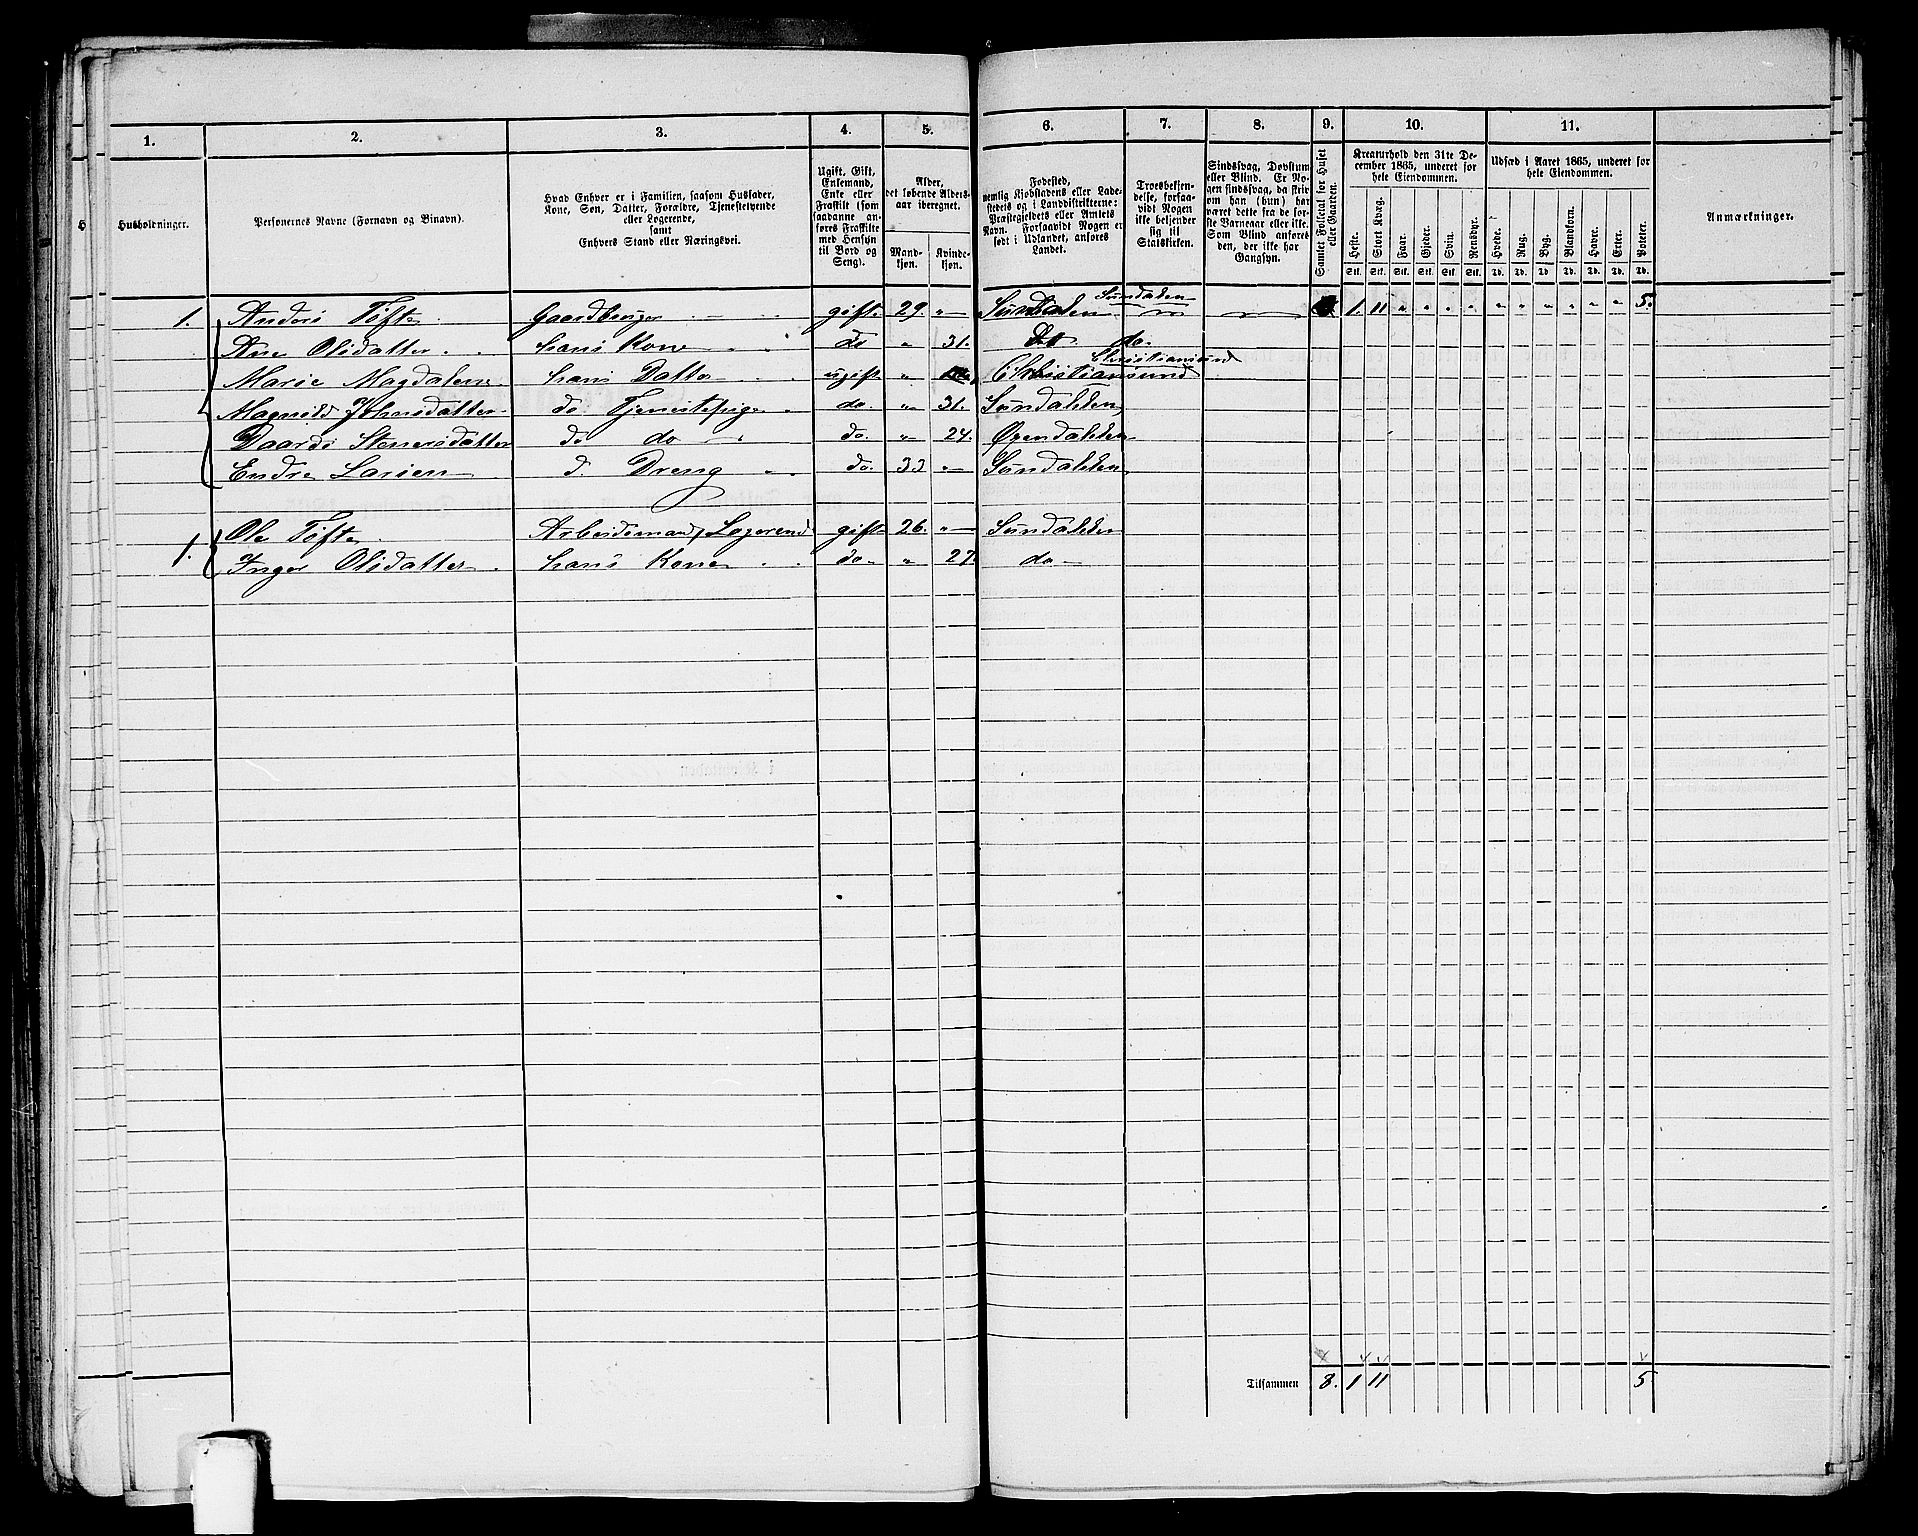 1. 2. 3. 4. 5. 6. 7. 8. 9. 10. 11.
Husholdninger.
Personernes Navne (Fornavn og Binavn).
Hvad Enhver er i Familien, saasom Husfader,
Kone, Søn, Datter, Forældre, Tjenestetyende
eller Logerende,
samt
Enhvers Stand eller Næringsvei.
Ugift, Gift,
Enkemand,
Enke eller
Fraskilt (som
saadanne an-
føres Fraskilte
med Hensyn
til Bord og
Seng).
Alder,
det løbende Alders-
aar iberegnet.
Mand-
kjøn.
Kvinde-
kjøn.
Fødested,
nemlig Kjøbstadens eller Lade-
stedets og i Landdistrikterne:
Præstegjeldets eller Amtets
Navn. Forsaavidt Nogen er
født i Udlandet, anføres
Landet.
Troesbekjen-
delse, forsaa-
vidt Nogen
ikke bekjender
sig til
Statskirken.
Sindssvag, Døvstum
eller Blind. Er No-
gen sindssvag, da skriv
om han (hun) har
været dette fra de før-
ste Barneaar eller ikke.
Som Blind anføres
den, der ikke har
Gangsyn.
Samlet Folketal for Huset
eller Gaarden.
Kreaturhold den 31te De-
cember 1865, underet for
hele Eiendommen.
Heste. Stort Kvæg. Faar. Gjeder. Svin. Rensdyr.
Stk. Stk. Stk. Stk. Stk. Stk.
Udsæd i Aaret 1865, underet for
hele Eiendommen.
Hvede. Rug. Byg. Blandkorn. Havre. Erter. Poteter.
Td. Td. Td. Td. Td. Td. Td.
Anmærkninger.
1. Anders Tøfte Gaardbruger gift 29. " Sundalen Sundalen 1. 11 " " " " " " " " " " 5.
Ane Olsdatter hans Kone do " 31. Do do
Marie Magdalene hans Datter ugift " Christiansund Christiansund
Magnild Johnsdatter do Tjenestepige do. " 31. Sundalen
Daardi Stenersdatter do do do. " 24. Øxendalen
Endre Larsen d. Dreng do. 33 " Sundalen
1. Ole Tøfte Arbeidsmand, Logerend gift 26. " Sundalen
Inger Olsdatter hans Kone do " 27. do
Tilsammen 8. 1 11 5